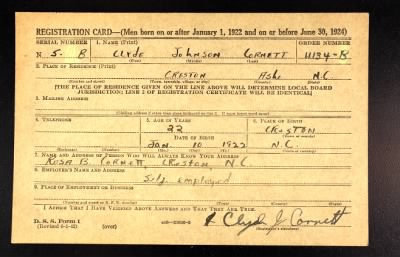 REGISTRATION CARD—(Men born on or after January 1, 1922 and on or before June 30, 1924)
SERIAL NUMBER 1. NAME (Print) ORDER NUMBER
N 5. B Clyde Johnson Cornett 11134-B
(First) (Middle) (Last)
2. PLACE OF RESIDENCE (Print)
Creston Ashe N.C.
(Number and street) (Town, township, village, or city) (County) (State)
[THE PLACE OF RESIDENCE GIVEN ON THE LINE ABOVE WILL DETERMINE LOCAL BOARD
JURISDICTION; LINE 2 OF REGISTRATION CERTIFICATE WILL BE IDENTICAL]
3. MAILING ADDRESS
[Mailing address if other than place indicated on line 2. If same insert word same]
4. TELEPHONE 5. AGE IN YEARS 6. PLACE OF BIRTH
22 Creston
DATE OF BIRTH (Town or county)
Jan. 10 1922 N.C.
(Exchange) (Number) (Mo.) (Day) (Yr.) (State or country)
7. NAME AND ADDRESS OF PERSON WHO WILL ALWAYS KNOW YOUR ADDRESS
Rosa B. Cornett, Creston, N.C.
8. EMPLOYER'S NAME AND ADDRESS
Self employed
9. PLACE OF EMPLOYMENT OR BUSINESS
(Number and street or R. F. D. number) (Town) (County) (State)
I AFFIRM THAT I HAVE VERIFIED ABOVE ANSWERS AND THAT THEY ARE TRUE.
D. S. S. Form 1
(Revised 6-1-42) (over) Clyde J Cornett